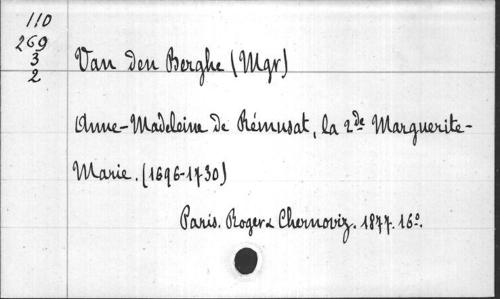 110
269
3
2
Van den Berghe (Mgr)
Anne-Madeleine de Rémusat, la 2de Marguerite-
Marie. (1696-1730)
Paris. Roger & Chernoviz. 1877. 16º.